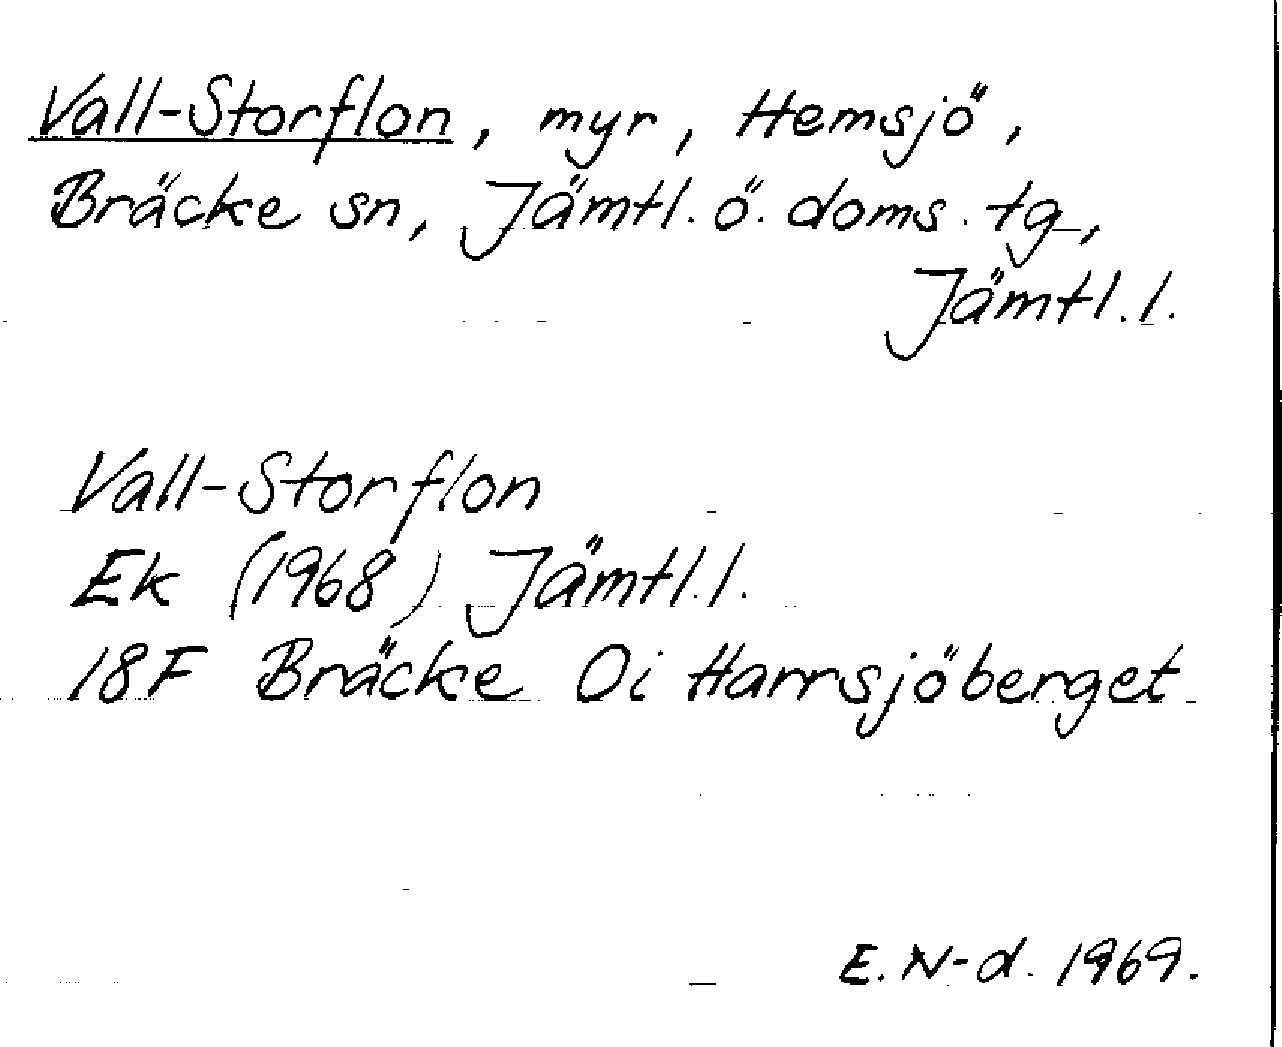 Vall-Storflon, myr, Hemsjö,
Bräcke sn, Jämtl. ö. doms. tg,
Jämtl. l.
Vall-Storflon
Ek (1968) Jämtl. l.
18F Bräcke 0i Harrsjöberget
E. N-d. 1969.